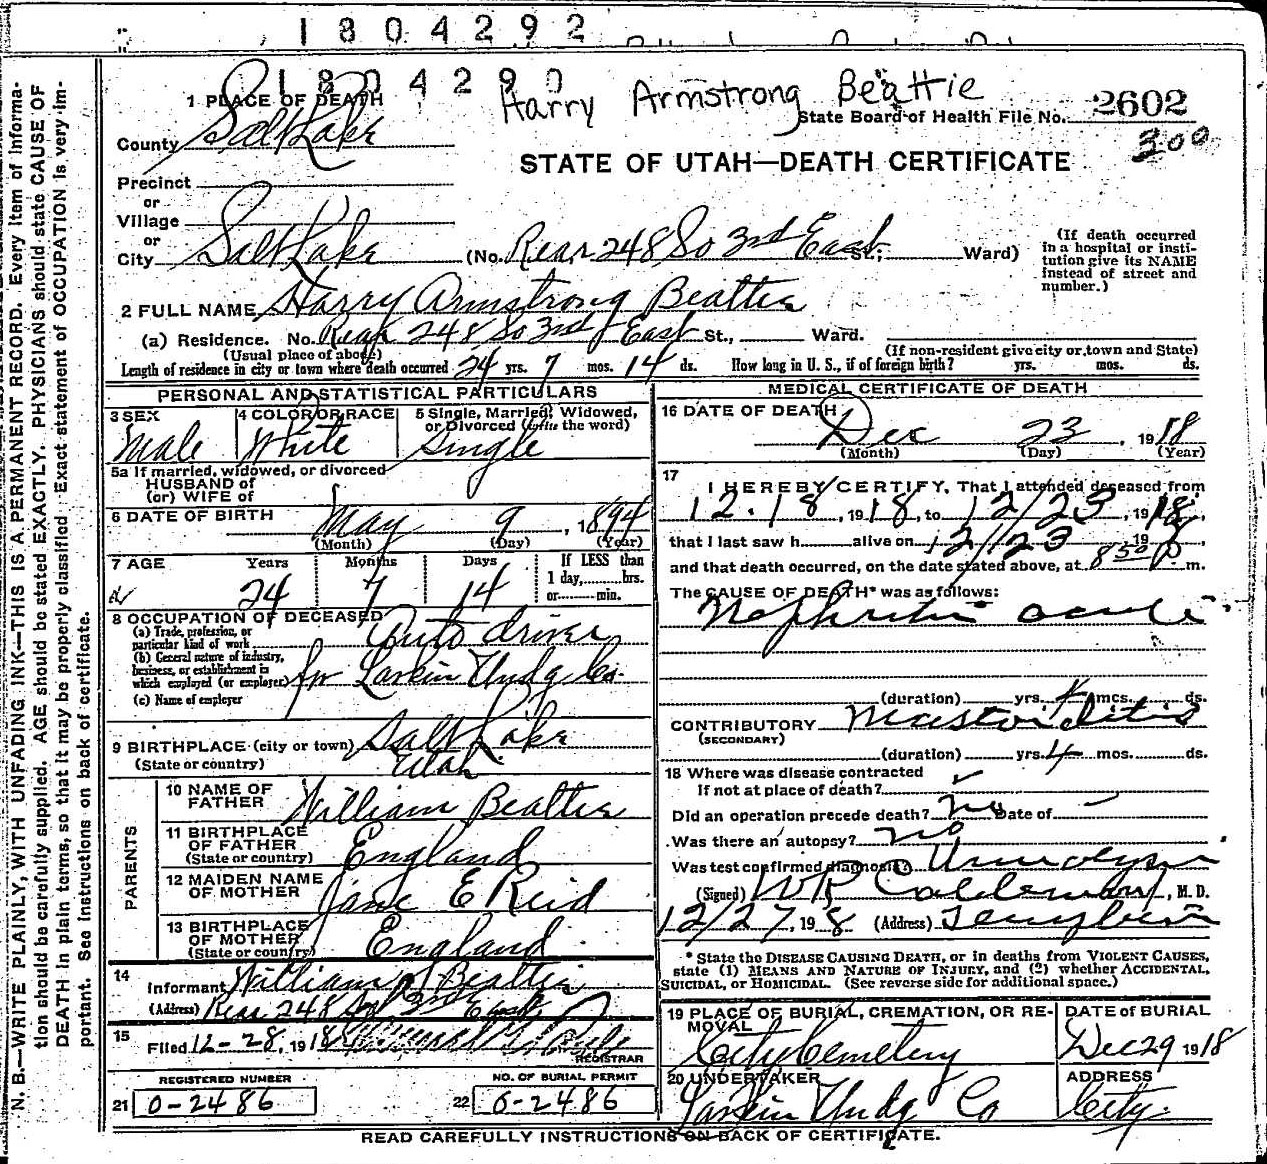 1804292
1804290
Harry Armstrong Beattie
1 PLACE OF DEATH
State Board of Health File No. 2602
300
County Salt Lake
STATE OF UTAH—DEATH CERTIFICATE
Precinct
or
Village
or
City Salt Lake (No. Rear 248 So 3rd East St.; Ward)
(If death occurred in a hospital or institution give its NAME instead of street and number.)
2 FULL NAME Harry Armstrong Beattie
(a) Residence. No. Rear 248 So 3rd East St., Ward.
(Usual place of abode) (If non-resident give city or town and State)
Length of residence in city or town where death occurred 24 yrs. 7 mos. 14 ds. How long in U. S., if of foreign birth? yrs. mos. ds.
PERSONAL AND STATISTICAL PARTICULARS
3 SEX Male
4 COLOR OR RACE White
5 Single, Married, Widowed, or Divorced (write the word) Single
5a If married, widowed, or divorced
HUSBAND of
(or) WIFE of
6 DATE OF BIRTH May 9, 1894
(Month) (Day) (Year)
7 AGE Years Months Days If LESS than
24 7 14 1 day, hrs.
or min.
8 OCCUPATION OF DECEASED
(a) Trade, profession, or particular kind of work Auto driver
(b) General nature of industry, business, or establishment in which employed (or employer) for Larkin Undg Co.
(c) Name of employer
9 BIRTHPLACE (city or town) Salt Lake
(State or country) Utah
PARENTS
10 NAME OF FATHER William Beattie
11 BIRTHPLACE OF FATHER (State or country) England
12 MAIDEN NAME OF MOTHER Jane E Reid
13 BIRTHPLACE OF MOTHER (State or country) England
14 Informant William J Beattie
(Address) Rear 248 So 3rd East
15 Filed 12-28, 1918
REGISTRAR
REGISTERED NUMBER
21 0-2486
NO. OF BURIAL PERMIT
22 0-2486
MEDICAL CERTIFICATE OF DEATH
16 DATE OF DEATH
Dec 23, 1918
(Month) (Day) (Year)
17 I HEREBY CERTIFY, That I attended deceased from
12.18, 1918, to 12/23, 1918,
that I last saw h alive on 12/23 198,
and that death occurred, on the date stated above, at 8 50 P. m.
The CAUSE OF DEATH* was as follows:
Nephritis acute
(duration) yrs. 4 mos. ds.
CONTRIBUTORY Mastoiditis
(SECONDARY)
(duration) yrs. 4 mos. ds.
18 Where was disease contracted
If not at place of death?
Did an operation precede death? no Date of —
Was there an autopsy? no
Was test confirmed diagnosis? Urinalysis
(Signed) W R Calderwood, M. D.
12/27, 198 (Address) Templeton
* State the DISEASE CAUSING DEATH, or in deaths from VIOLENT CAUSES,
state (1) MEANS AND NATURE OF INJURY, and (2) whether ACCIDENTAL,
SUICIDAL, or HOMICIDAL. (See reverse side for additional space.)
19 PLACE OF BURIAL, CREMATION, OR REMOVAL City Cemetery
DATE OF BURIAL Dec 29 1918
20 UNDERTAKER Larkin Undg Co
ADDRESS City
READ CAREFULLY INSTRUCTIONS ON BACK OF CERTIFICATE.
N. B.—WRITE PLAINLY, WITH UNFADING INK—THIS IS A PERMANENT RECORD. Every item of Information should be carefully supplied. AGE should be stated EXACTLY. PHYSICIANS should state CAUSE OF DEATH in plain terms, so that it may be properly classified. Exact statement of OCCUPATION is very important. See instructions on back of certificate.